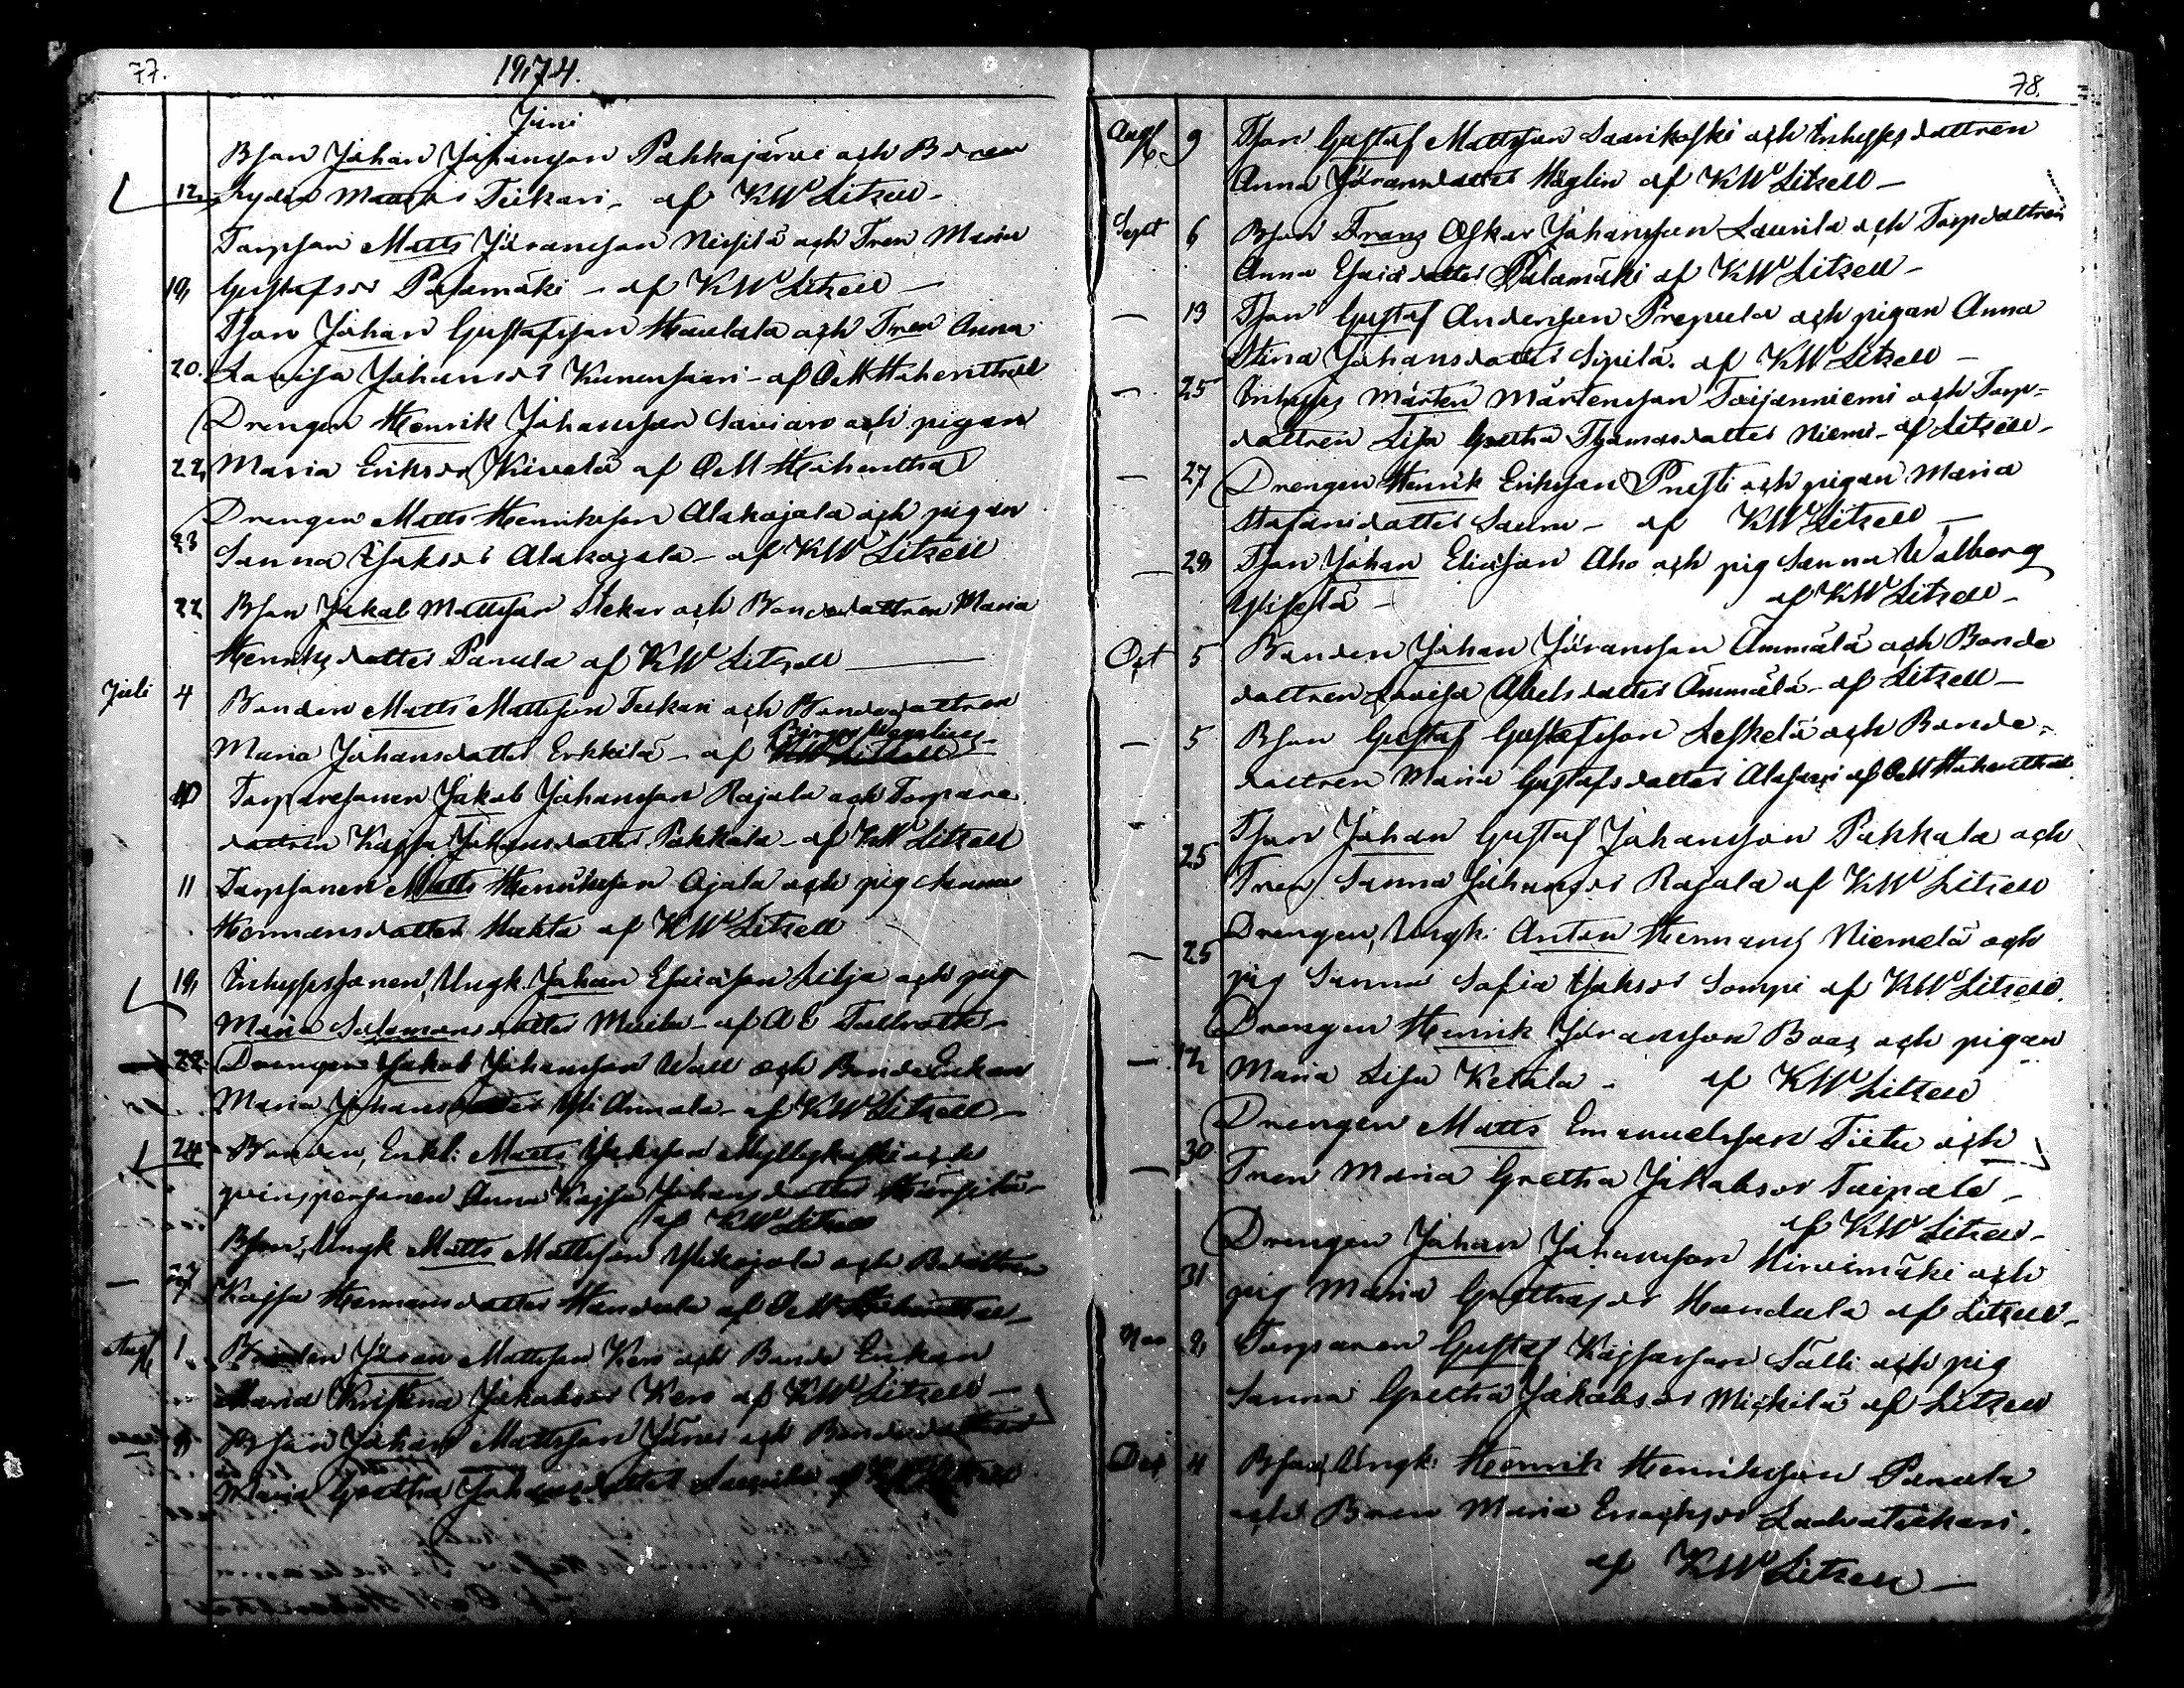 77.
1874.
Juni
Bson Johan Johansson Pahkajärvi och Bdren
12. Lydia Mattsdr Tiikari - af KW Litzell -
Torpson Matts Jöransson Nissilä och Tren Maria
19, Gustafsdr Palomäki - af KW Litzell -
Tson Johan Gustafsson Haulala och Tren Anna
20. Lovisa Johansdr Kunensaari - af OM Hohenthal
Drengen Henrik Johansson Saviaro och pigan
22, Maria Eriksdr Kivelä af OM Hohenthal
Drengen Matts Henriksson Alakojola och pigan
23 Sanna Isaksdr Alakojola - af KW Litzell
22 Bson Jakob Mattsson Stekar och Bondedottren Maria
Henriksdotter Panula af KW Litzell
Juli 4 Bonden Matts Mattsson Tiikari och Bondedottren
Maria Johansdotter Erkkilä - af
10 Torparesonen Jakob Johansson Rajala och Torpare
dottren Kajsa Johansdotter Pakkala - af KW Litzell
11 Torpsonen Matts Henriksson Ojala och pig Sanna
Hermansdotter Huhta af KW Litzell
19, Inhyssonen, Ungk. Johan Esaiasson Lilja och pig
Maria Salomonsdotter - af
22 Drengen Jakob Johansson Wall och Bonde Enkan
Maria Yli Annala - af KW Litzell -
24 Bonden, Enkl: Matts Isaksson Myllykoski och
qvinspersonen Anna Kajsa Johansdotter
af KW Litzell
Bson, Ungk Matts Mattsson Ylikojola och Bdottren
27 Kajsa Hermansdotter Handula af OM Hohenthal -
Aug 1. Bonden Jöran Mattsson Kero och Bonde Enkan
Maria Kristina Jakobsdr Kero af KW Litzell -
8 Bson Johan Mattsson och Bondedottren
Maria Gretha Johansdotter af KW Litzell
78.
Aug 9 Tson Gustaf Mattsson Saarikoski och Inhysesdottren
Anna Jöransdotter Häglin af KW Litzell -
Sept 6 Bson Frans Oskar Johansson Laurila och Torpdottren
Anna Esaiadotter Palomäki af KW Litzell -
- 13 Tson Gustaf Andersson Prepula och pigan Anna
Stina Johansdotter Sipilä. af KW Litzell -
- 25 Inhyses Mårten Mårtensson Taijanniemi och Torp-
dottren Lisa Gretha Thomasdotter Niemi - af Litzell -
- 27 Drengen Henrik Eriksson Presti och pigan Maria
Stafansdotter - af KW Litzell -
- 29, Tson Johan Eliasson Aho och pig Sanna Walborg
af KW Litzell -
Oct 5 Bonden Johan Jöransson Ämmälä och Bonde
dottren Lovisa Abelsdotter Ämmälä - af Litzell -
- 5 Bson Gustaf Gustafsson Leskelä och Bonde-
dottren Maria Gustafsdotter af OM Hohenthal
- 25 Tson Johan Gustaf Johansson Pakkala och
Tren Sanna Johansdr Rajala af KW Litzell
- 25 Drengen, Ungk: Anton Niemelä och
pig Sanna Sofia Isaksdr Sompi af KW Litzell.
Drengen Henrik Jöransson Boas och pigan
- 12 Maria Lisa Ketola - af KW Litzell
Drengen Matts Emanuelsson Tietu och
- 30 Tren Maria Gretha Jakobsdr Taipale -
af KW Litzell -
Drengen Johan Johansson Hirvimäki och
31 pig Maria Grethasdr Handula af Litzell -
Nov 9, Torparen Gustaf Kajsasson Sälli och pig
Sanna Gretha Jakobsdr Mickilä af Litzell
Dec 4 Bson Ungk: Henrik Henriksson Panula
och Bren Maria
af KW Litzell -